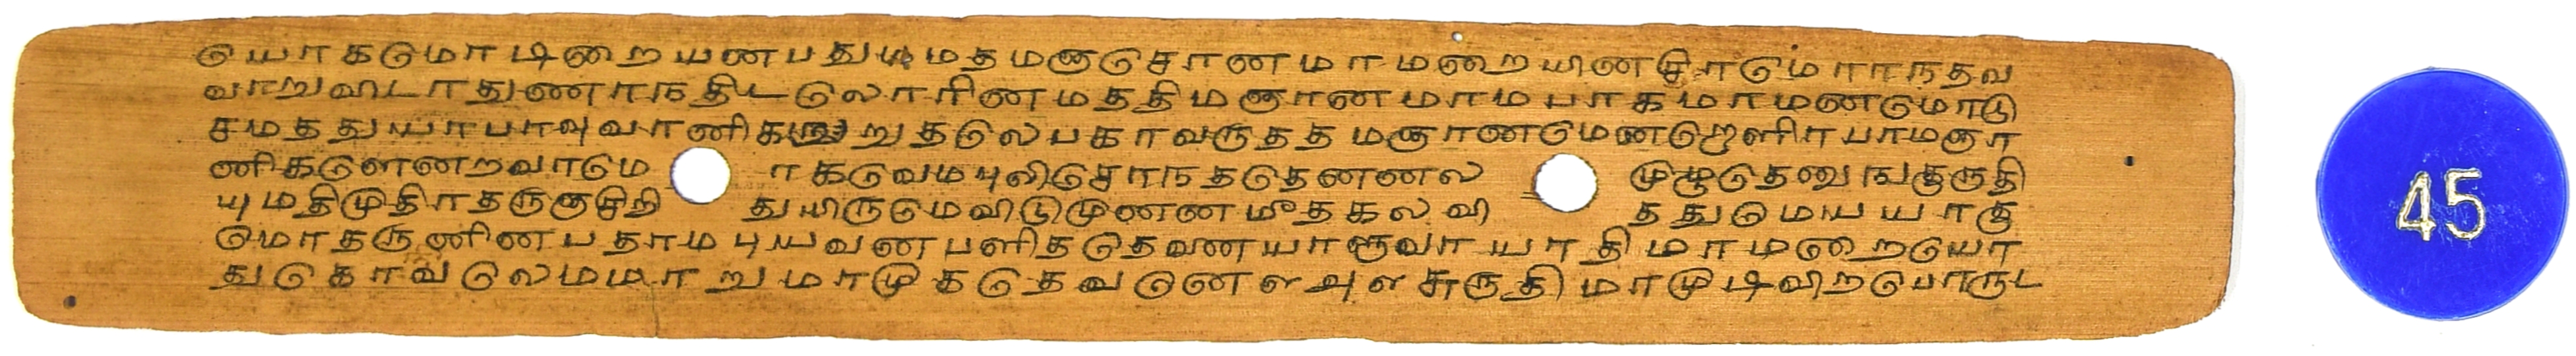 யொகமொடிறையனபதுயுமதமகுசொனமாமறையினசிரமொராநதவ
வாறுவிடாதுணாநதிடலொரினமததிமஞானமாமபாகமாமணமொடு
சமததுயாபாவுவானிகருறுதலெபகாவருததமஞானமெனறெளிரயாமஞா
னிகளெனறவாமொகவெமபுலிசொநததெனனல முழுதெனுஙகுருதி
யுமதிமுதிரதருகுசிறிதுயிருமெவிமுெணணமூதகலவி தததுமெயயாகு
மொதருணினபதாமபுயவணபணிததெவணயாளுவாயாதிமாமறையொ
துகொவலெமமாறுமாமுகதெவனெ ௭அ௭ சுருதிமாமுடிவிறபொருட